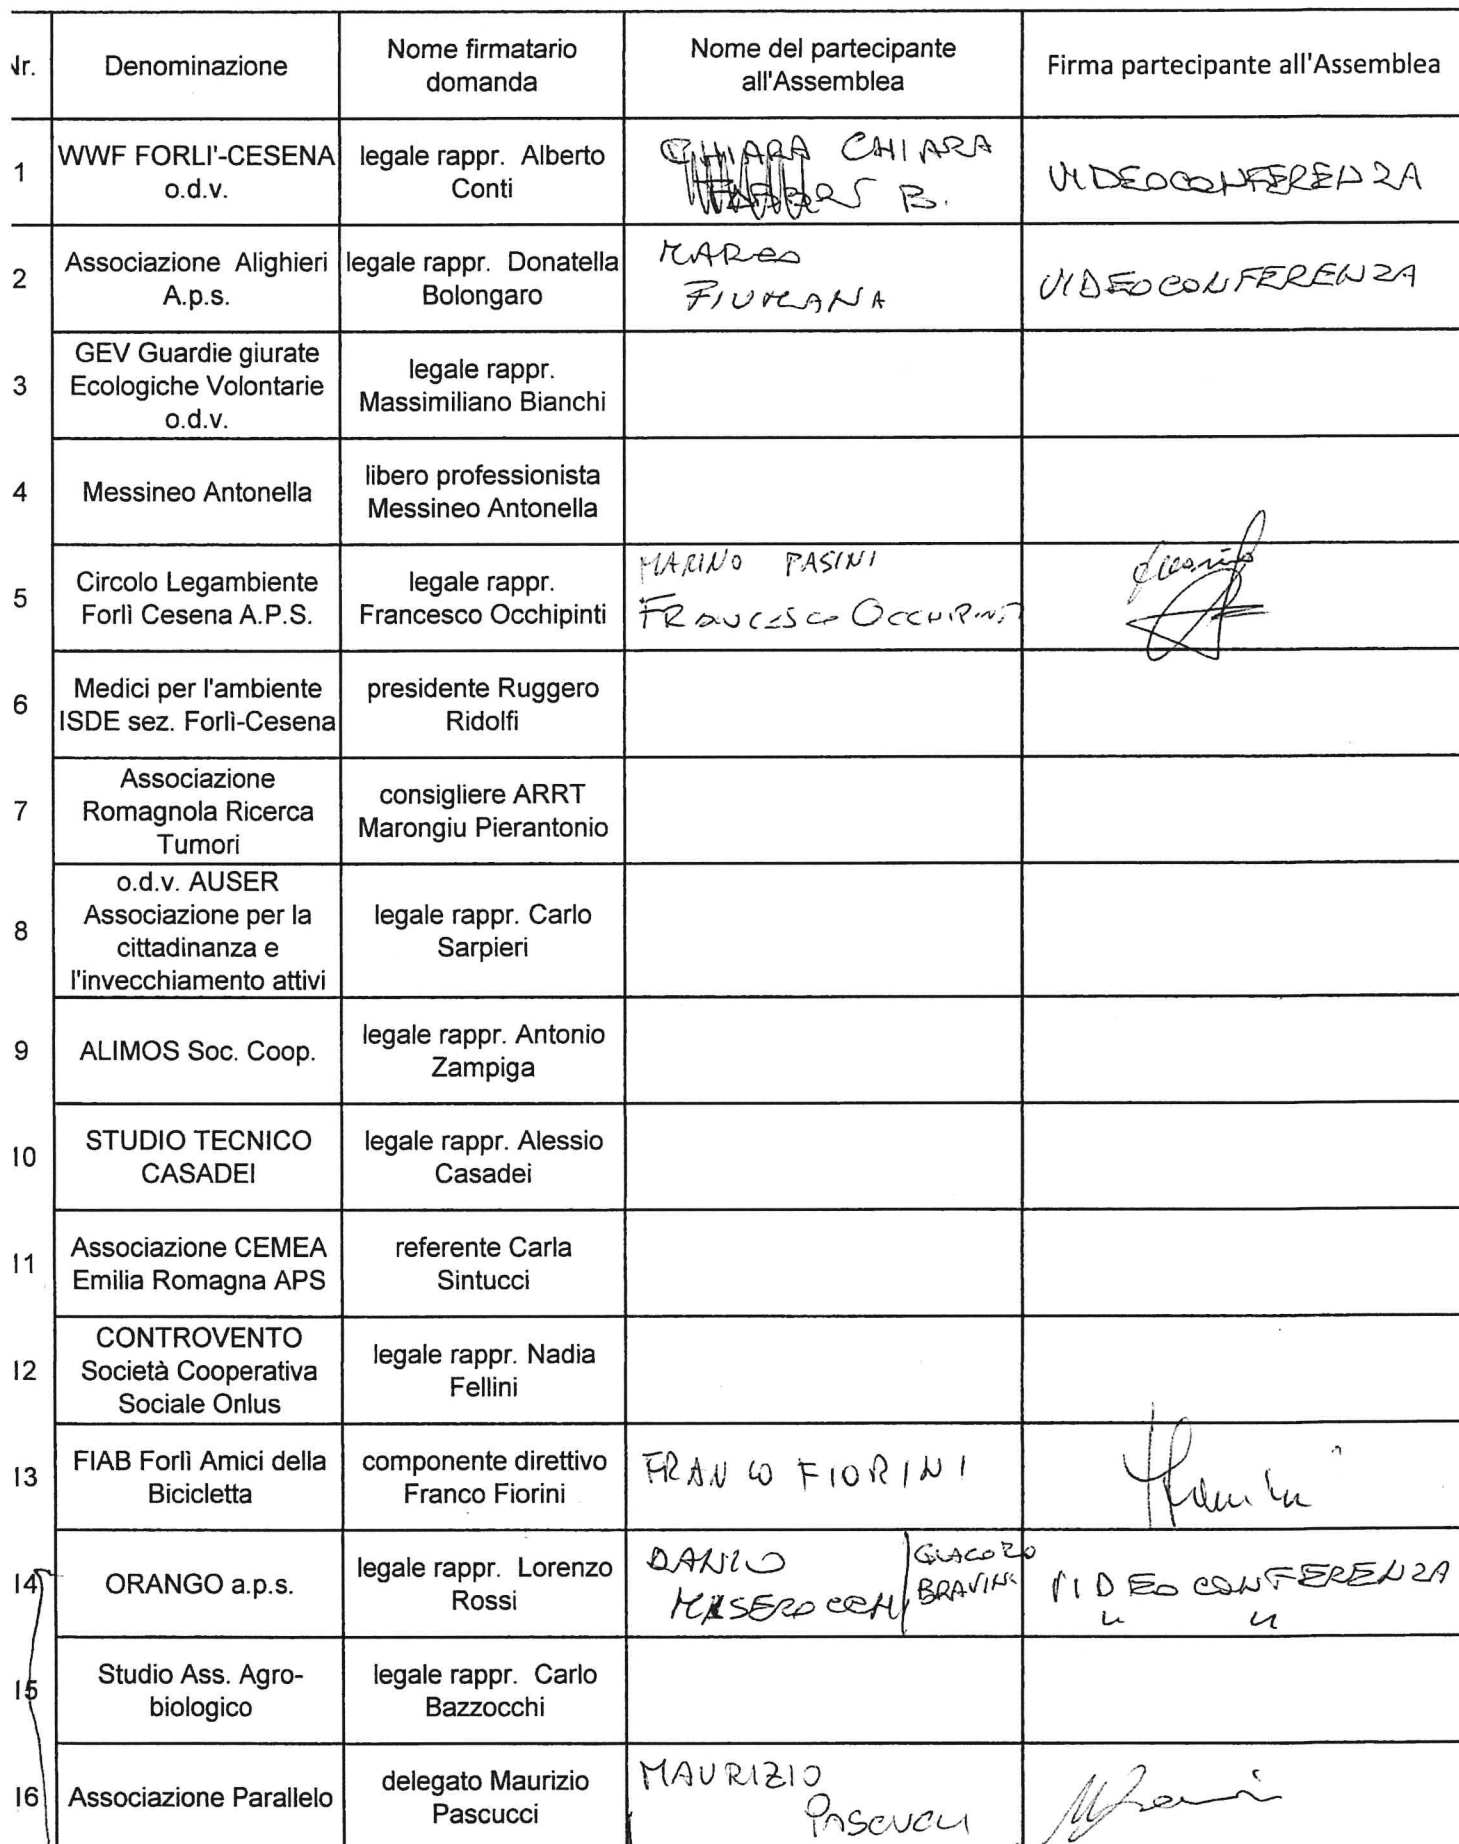 Nr. Denominazione Nome firmatario domanda Nome del partecipante all'Assemblea Firma partecipante all'Assemblea
1 WWF FORLI'-CESENA o.d.v. legale rappr. Alberto Conti CHIARA CHIARA B. VIDEOCONFERENZA
2 Associazione Alighieri A.p.s. legale rappr. Donatella Bolongaro MARCO FIUMANA VIDEOCONFERENZA
3 GEV Guardie giurate Ecologiche Volontarie o.d.v. legale rappr. Massimiliano Bianchi
4 Messineo Antonella libero professionista Messineo Antonella
5 Circolo Legambiente Forlì Cesena A.P.S. legale rappr. Francesco Occhipinti MARINO PASINI FRANCESCO OCCHIPINTI
6 Medici per l'ambiente ISDE sez. Forlì-Cesena presidente Ruggero Ridolfi
7 Associazione Romagnola Ricerca Tumori consigliere ARRT Marongiu Pierantonio
8 o.d.v. AUSER Associazione per la cittadinanza e l'invecchiamento attivi legale rappr. Carlo Sarpieri
9 ALIMOS Soc. Coop. legale rappr. Antonio Zampiga
10 STUDIO TECNICO CASADEI legale rappr. Alessio Casadei
11 Associazione CEMEA Emilia Romagna APS referente Carla Sintucci
12 CONTROVENTO Società Cooperativa Sociale Onlus legale rappr. Nadia Fellini
13 FIAB Forlì Amici della Bicicletta componente direttivo Franco Fiorini FRANCO FIORINI
14 ORANGO a.p.s. legale rappr. Lorenzo Rossi DANILO MISEROCCHI GIACOMO BRAVINI VIDEOCONFERENZA " "
15 Studio Ass. Agro-biologico legale rappr. Carlo Bazzocchi
16 Associazione Parallelo delegato Maurizio Pascucci MAURIZIO PASCUCCI